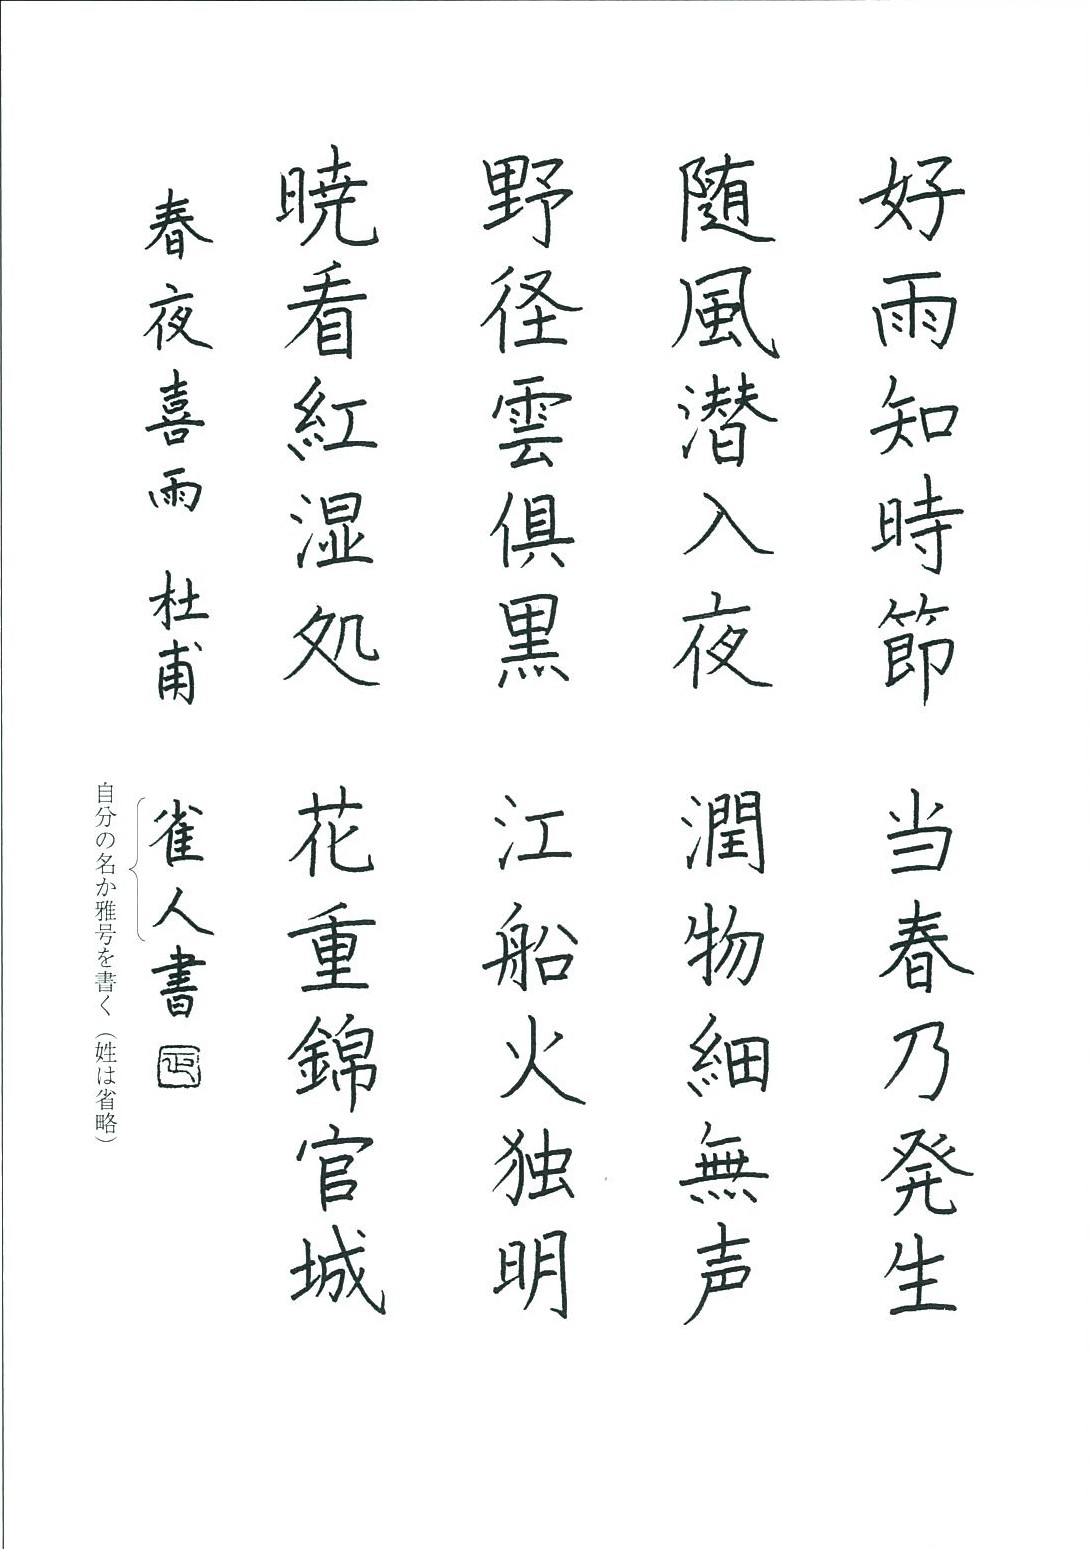 好雨知時節　当春乃発生
随風潜入夜　潤物細無声
野径雲倶黒　江船火独明
暁看紅湿処　花重錦官城
春夜喜雨　杜甫　雀人書
自分の名か雅号を書く（姓は省略）